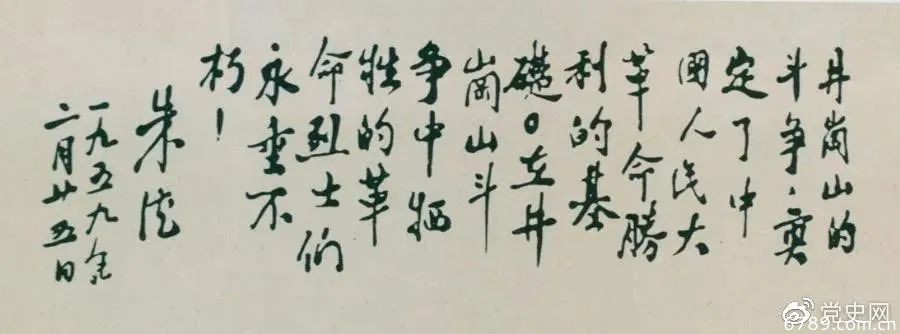 井崗山的
斗争，奠
定了中
國人民大
革命勝
利的基
礎。在井
崗山斗
争中牺
牲的革
命烈士们
永垂不
朽！
朱德
一九五九年
二月廿五日
党史网
6789.com.cn